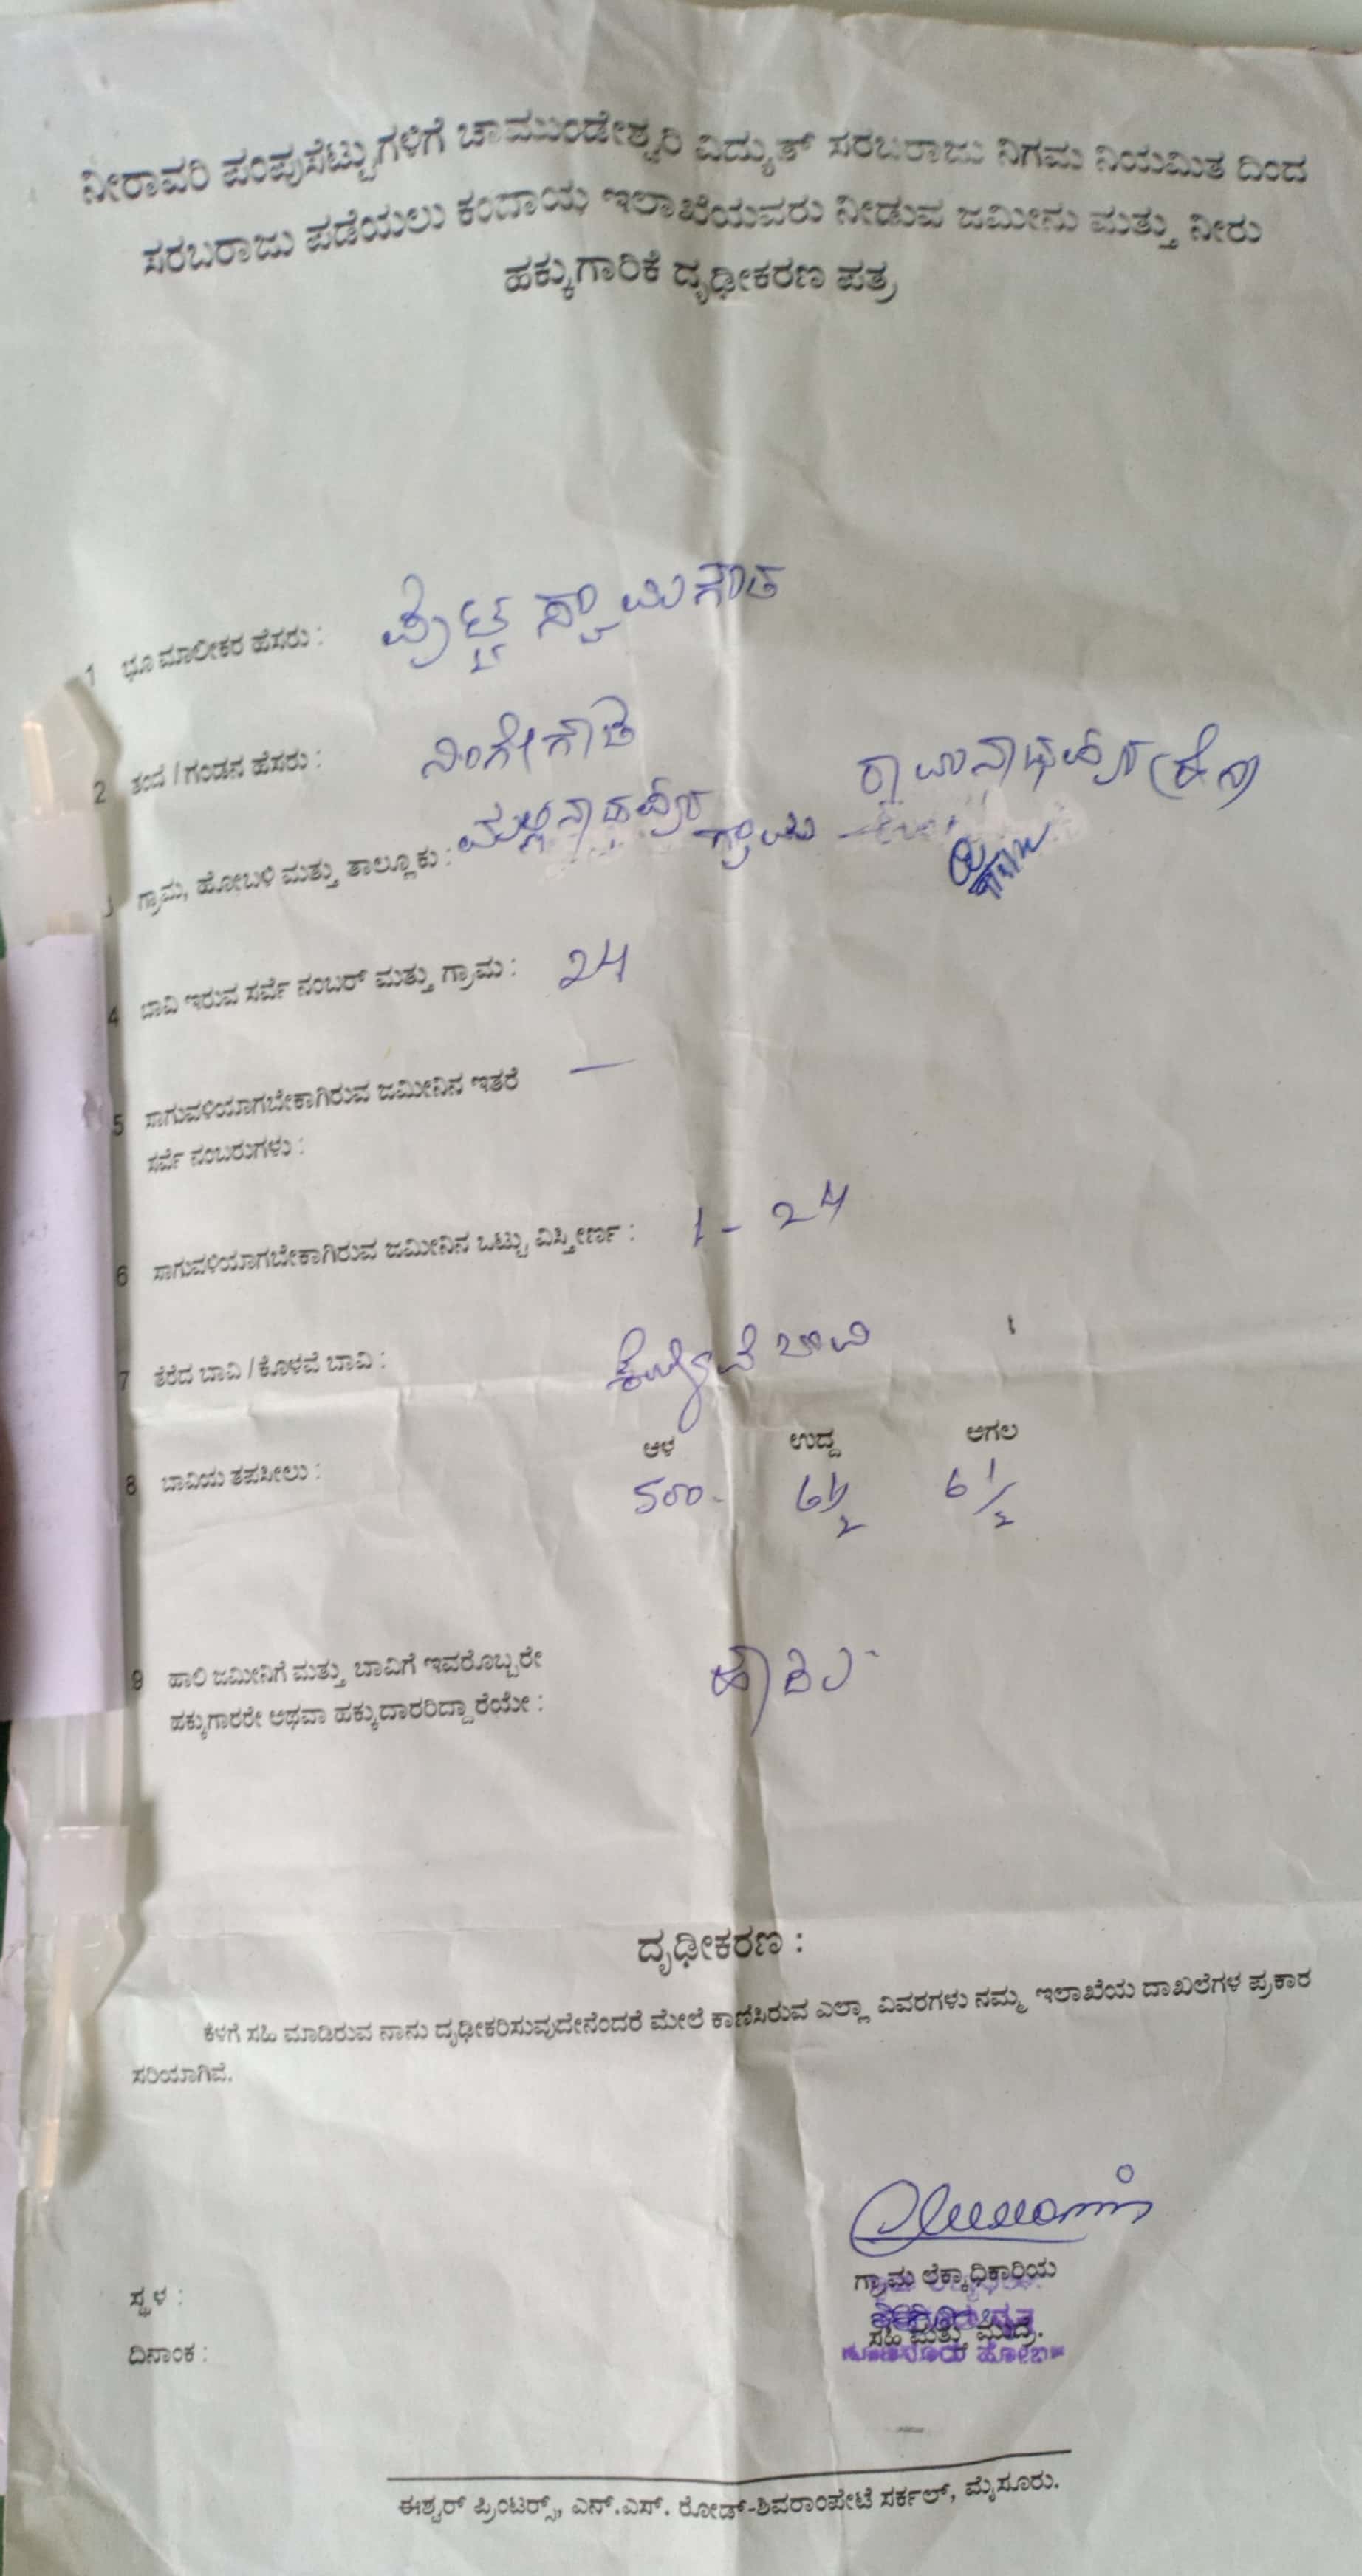 ನೀರಾವರಿ ಪಂಪುಸೆಟ್ಟುಗಳಿಗೆ ಚಾಮುಂಡೇಶ್ವರಿ ವಿದ್ಯುತ್ ಸರಬರಾಜು ನಿಗಮ ನಿಯಮಿತ ದಿಂದ
ಸರಬರಾಜು ಪಡೆಯಲು ಕಂದಾಯ ಇಲಾಖೆಯವರು ನೀಡುವ ಜಮೀನು ಮತ್ತು ನೀರು
ಹಕ್ಕುಗಾರಿಕೆ ದೃಢೀಕರಣ ಪತ್ರ
1 ಭೂ ಮಾಲೀಕರ ಹೆಸರು : ಪುಟ್ಟಸ್ವಾಮಿಗೌಡ
2 ತಂದೆ / ಗಂಡನ ಹೆಸರು : ನಿಂಗೇಗೌಡ
ಗ್ರಾಮ, ಹೋಬಳಿ ಮತ್ತು ತಾಲ್ಲೂಕು : ಗ್ರಾಮ
4 ಬಾವಿ ಇರುವ ಸರ್ವೆ ನಂಬರ್ ಮತ್ತು ಗ್ರಾಮ : 24
5 ಸಾಗುವಳಿಯಾಗಬೇಕಾಗಿರುವ ಜಮೀನಿನ ಇತರೆ —
ಸರ್ವೆ ನಂಬರುಗಳು :
6 ಸಾಗುವಳಿಯಾಗಬೇಕಾಗಿರುವ ಜಮೀನಿನ ಒಟ್ಟು ವಿಸ್ತೀರ್ಣ : 1 - 24
7 ತೆರೆದ ಬಾವಿ / ಕೊಳವೆ ಬಾವಿ : ಕೊಳವೆ ಬಾವಿ
ಆಳ ಉದ್ದ ಅಗಲ
8 ಬಾವಿಯ ತಪಸೀಲು : 500 - 6 1/2 6 1/2
9 ಹಾಲಿ ಜಮೀನಿಗೆ ಮತ್ತು ಬಾವಿಗೆ ಇವರೊಬ್ಬರೇ
ಹಕ್ಕುಗಾರರೇ ಅಥವಾ ಹಕ್ಕುದಾರರಿದ್ದಾರೆಯೇ :
ದೃಢೀಕರಣ :
ಕೆಳಗೆ ಸಹಿ ಮಾಡಿರುವ ನಾನು ದೃಢೀಕರಿಸುವುದೇನೆಂದರೆ ಮೇಲೆ ಕಾಣಿಸಿರುವ ಎಲ್ಲಾ ವಿವರಗಳು ನಮ್ಮ ಇಲಾಖೆಯ ದಾಖಲೆಗಳ ಪ್ರಕಾರ
ಸರಿಯಾಗಿವೆ.
ಗ್ರಾಮ ಲೆಕ್ಕಾಧಿಕಾರಿಯ
ಸಹಿ ಮತ್ತು ಮುದ್ರೆ.
ಸ್ಥಳ :
ದಿನಾಂಕ :
ಈಶ್ವರ್ ಪ್ರಿಂಟರ್ಸ್, ಎನ್.ಎಸ್. ರೋಡ್-ಶಿವರಾಂಪೇಟೆ ಸರ್ಕಲ್, ಮೈಸೂರು.